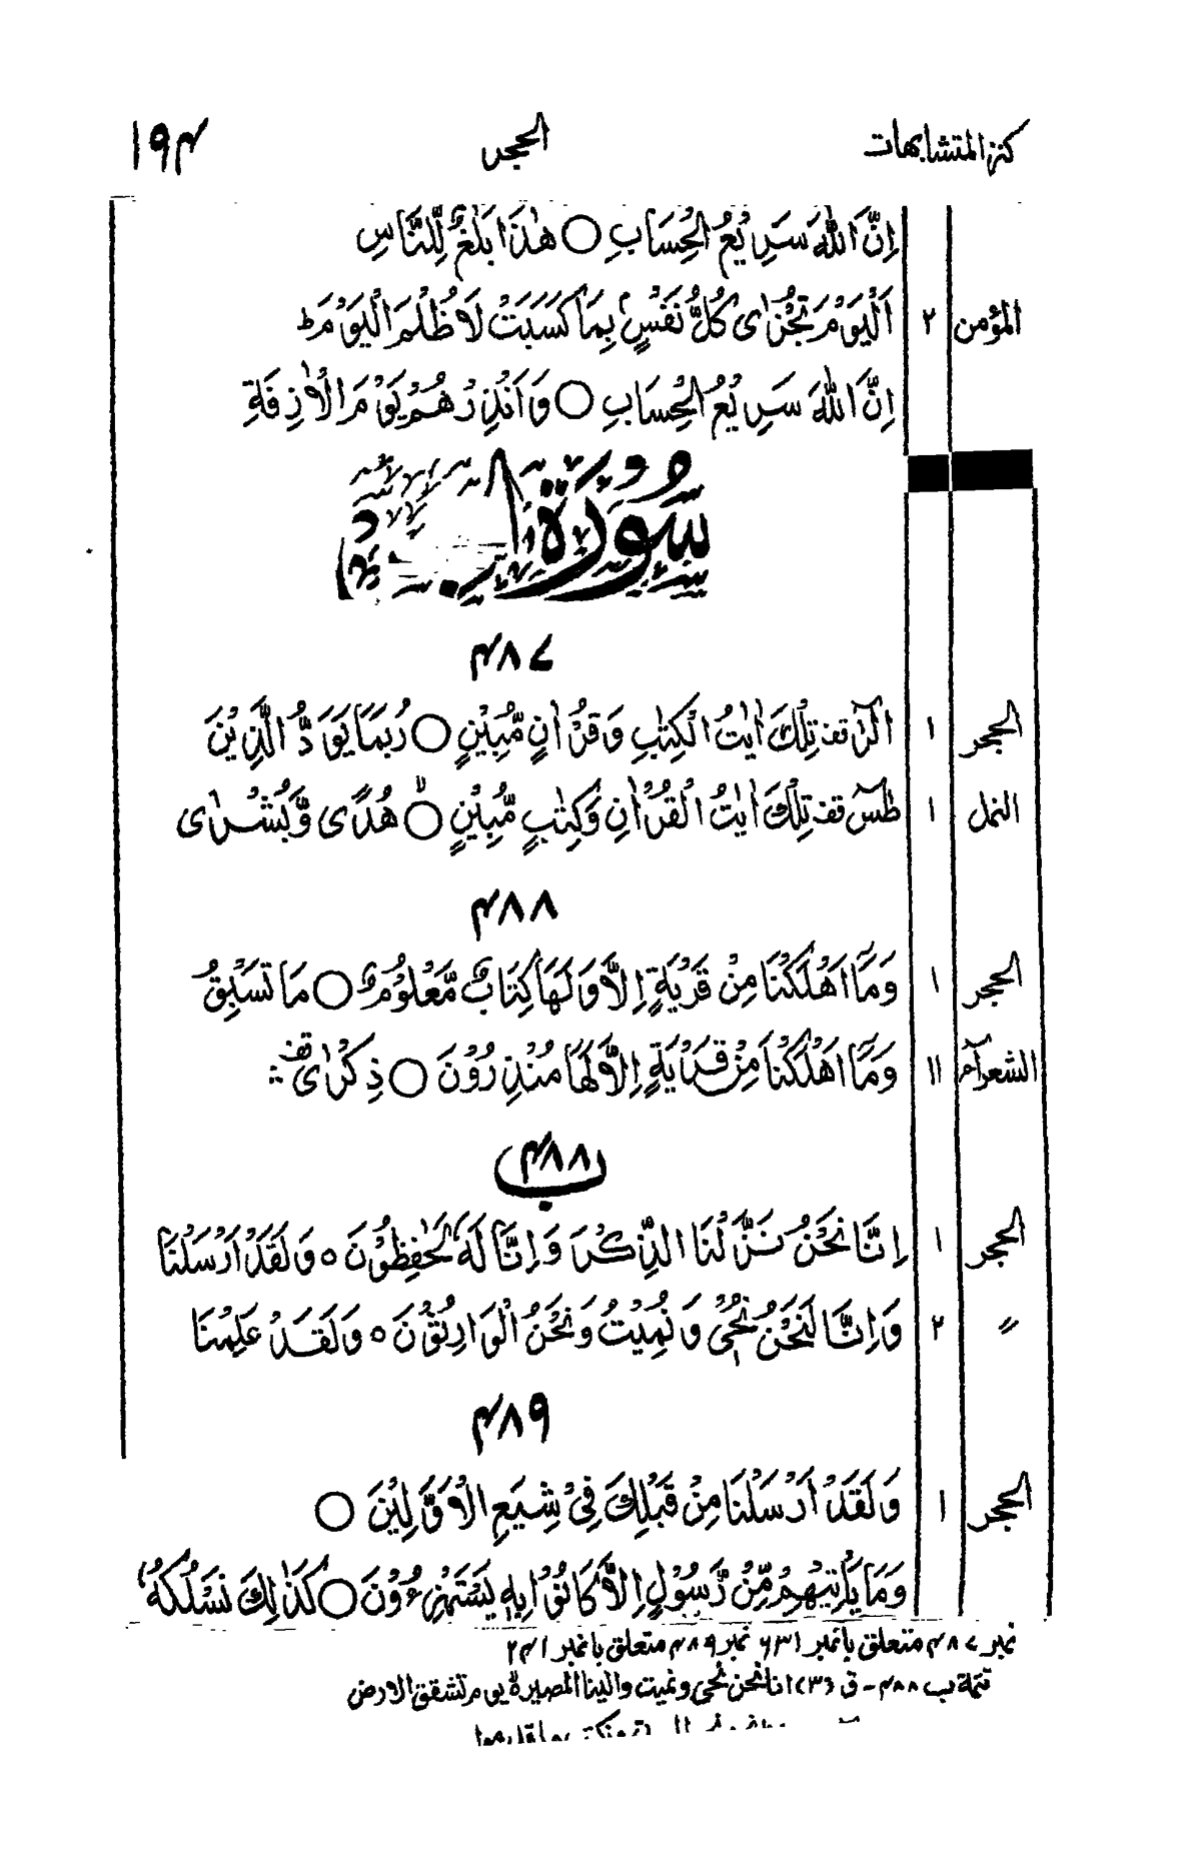 كنز المتشابهات الحجر ١٩٤
اِنَّ اللّٰهَ سَرِيْعُ الْحِسَابِ ○ هٰذَا بَلٰغٌ لِّلنَّاسِ
المؤمن ٢ اَلْيَوْمَ تُجْزٰى كُلُّ نَفْسٍۭ بِمَا كَسَبَتْ لَا ظُلْمَ الْيَوْمَ ط
اِنَّ اللّٰهَ سَرِيْعُ الْحِسَابِ ○ وَاَنْذِرْهُمْ يَوْمَ الْاٰزِفَةِ
سُوْرَةُ
٤٨٧
الحجر ١ الٓرٰ قف تِلْكَ اٰيٰتُ الْكِتٰبِ وَقُرْاٰنٍ مُّبِيْنٍ ○ رُبَمَا يَوَدُّ الَّذِيْنَ
النمل ١ طٰسٓ قف تِلْكَ اٰيٰتُ الْقُرْاٰنِ وَكِتٰبٍ مُّبِيْنٍ ○ هُدًى وَّبُشْرٰى
٤٨٨
الحجر ١ وَمَآ اَهْلَكْنَا مِنْ قَرْيَةٍ اِلَّا وَلَهَا كِتَابٌ مَّعْلُوْمٌ ○ مَا تَسْبِقُ
الشعرآء ١١ وَمَآ اَهْلَكْنَا مِنْ قَرْيَةٍ اِلَّا لَهَا مُنْذِرُوْنَ ○ ذِكْرٰى قف
٤٨٨ ب
الحجر ١ اِنَّا نَحْنُ نَزَّلْنَا الذِّكْرَ وَاِنَّا لَهٗ لَحٰفِظُوْنَ ○ وَلَقَدْ اَرْسَلْنَا
〃 ٢ وَاِنَّا لَنَحْنُ نُحْيٖ وَنُمِيْتُ وَنَحْنُ الْوَارِثُوْنَ ○ وَلَقَدْ عَلِمْنَا
٤٨٩
الحجر ١ وَلَقَدْ اَرْسَلْنَا مِنْ قَبْلِكَ فِيْ شِيَعِ الْاَوَّلِيْنَ ○
وَمَا يَاْتِيْهِمْ مِّنْ رَّسُوْلٍ اِلَّا كَانُوْا بِهٖ يَسْتَهْزِءُوْنَ ○ كَذٰلِكَ نَسْلُكُهٗ
نمبر ٤٨٧ متعلق بانمبر ٦٣١ نمبر ٤٨٩ متعلق بانمبر ٢٤١
تتمة ب ٤٨٨ - ق (٣) انا نحن نحى ونميت والينا المصير ○ يوم تشقق الارض